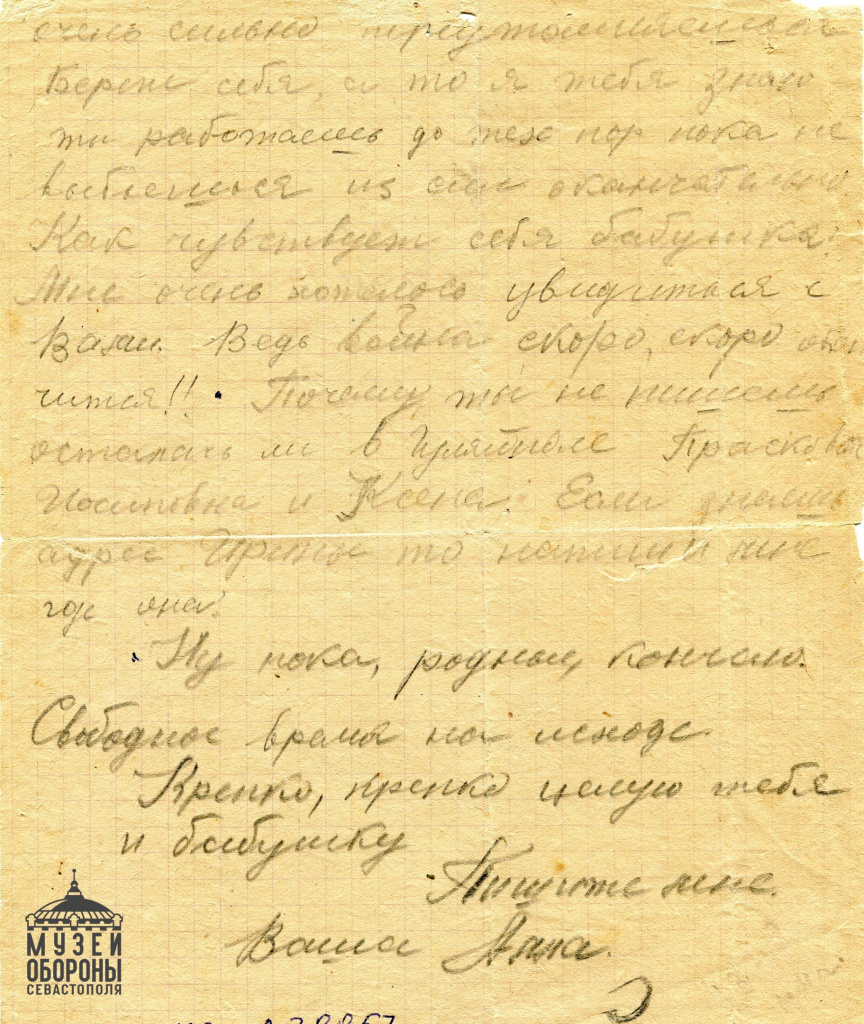 очень сильно переутомляешься
Береги себя, а то я тебя знаю
ты работаешь до тех пор пока не
выбьешься из сил окончательно.
Как чувствует себя бабушка?
Мне очень хотелось увидиться с
Вами. Ведь война скоро, скоро окон
чится!! Почему ты не пишешь
осталась ли в Гуляйполе Прасковья
Иосиповна и Ксеня. Если знаешь
адрес то напиши мне
где она.
Ну пока, родные, кончаю.
Свободное время на исходе.
Крепко, крепко целую тебя
и бабушку
Пишите мне.
Ваша Анна.
МУЗЕЙ
ОБОРОНЫ
СЕВАСТОПОЛЯ